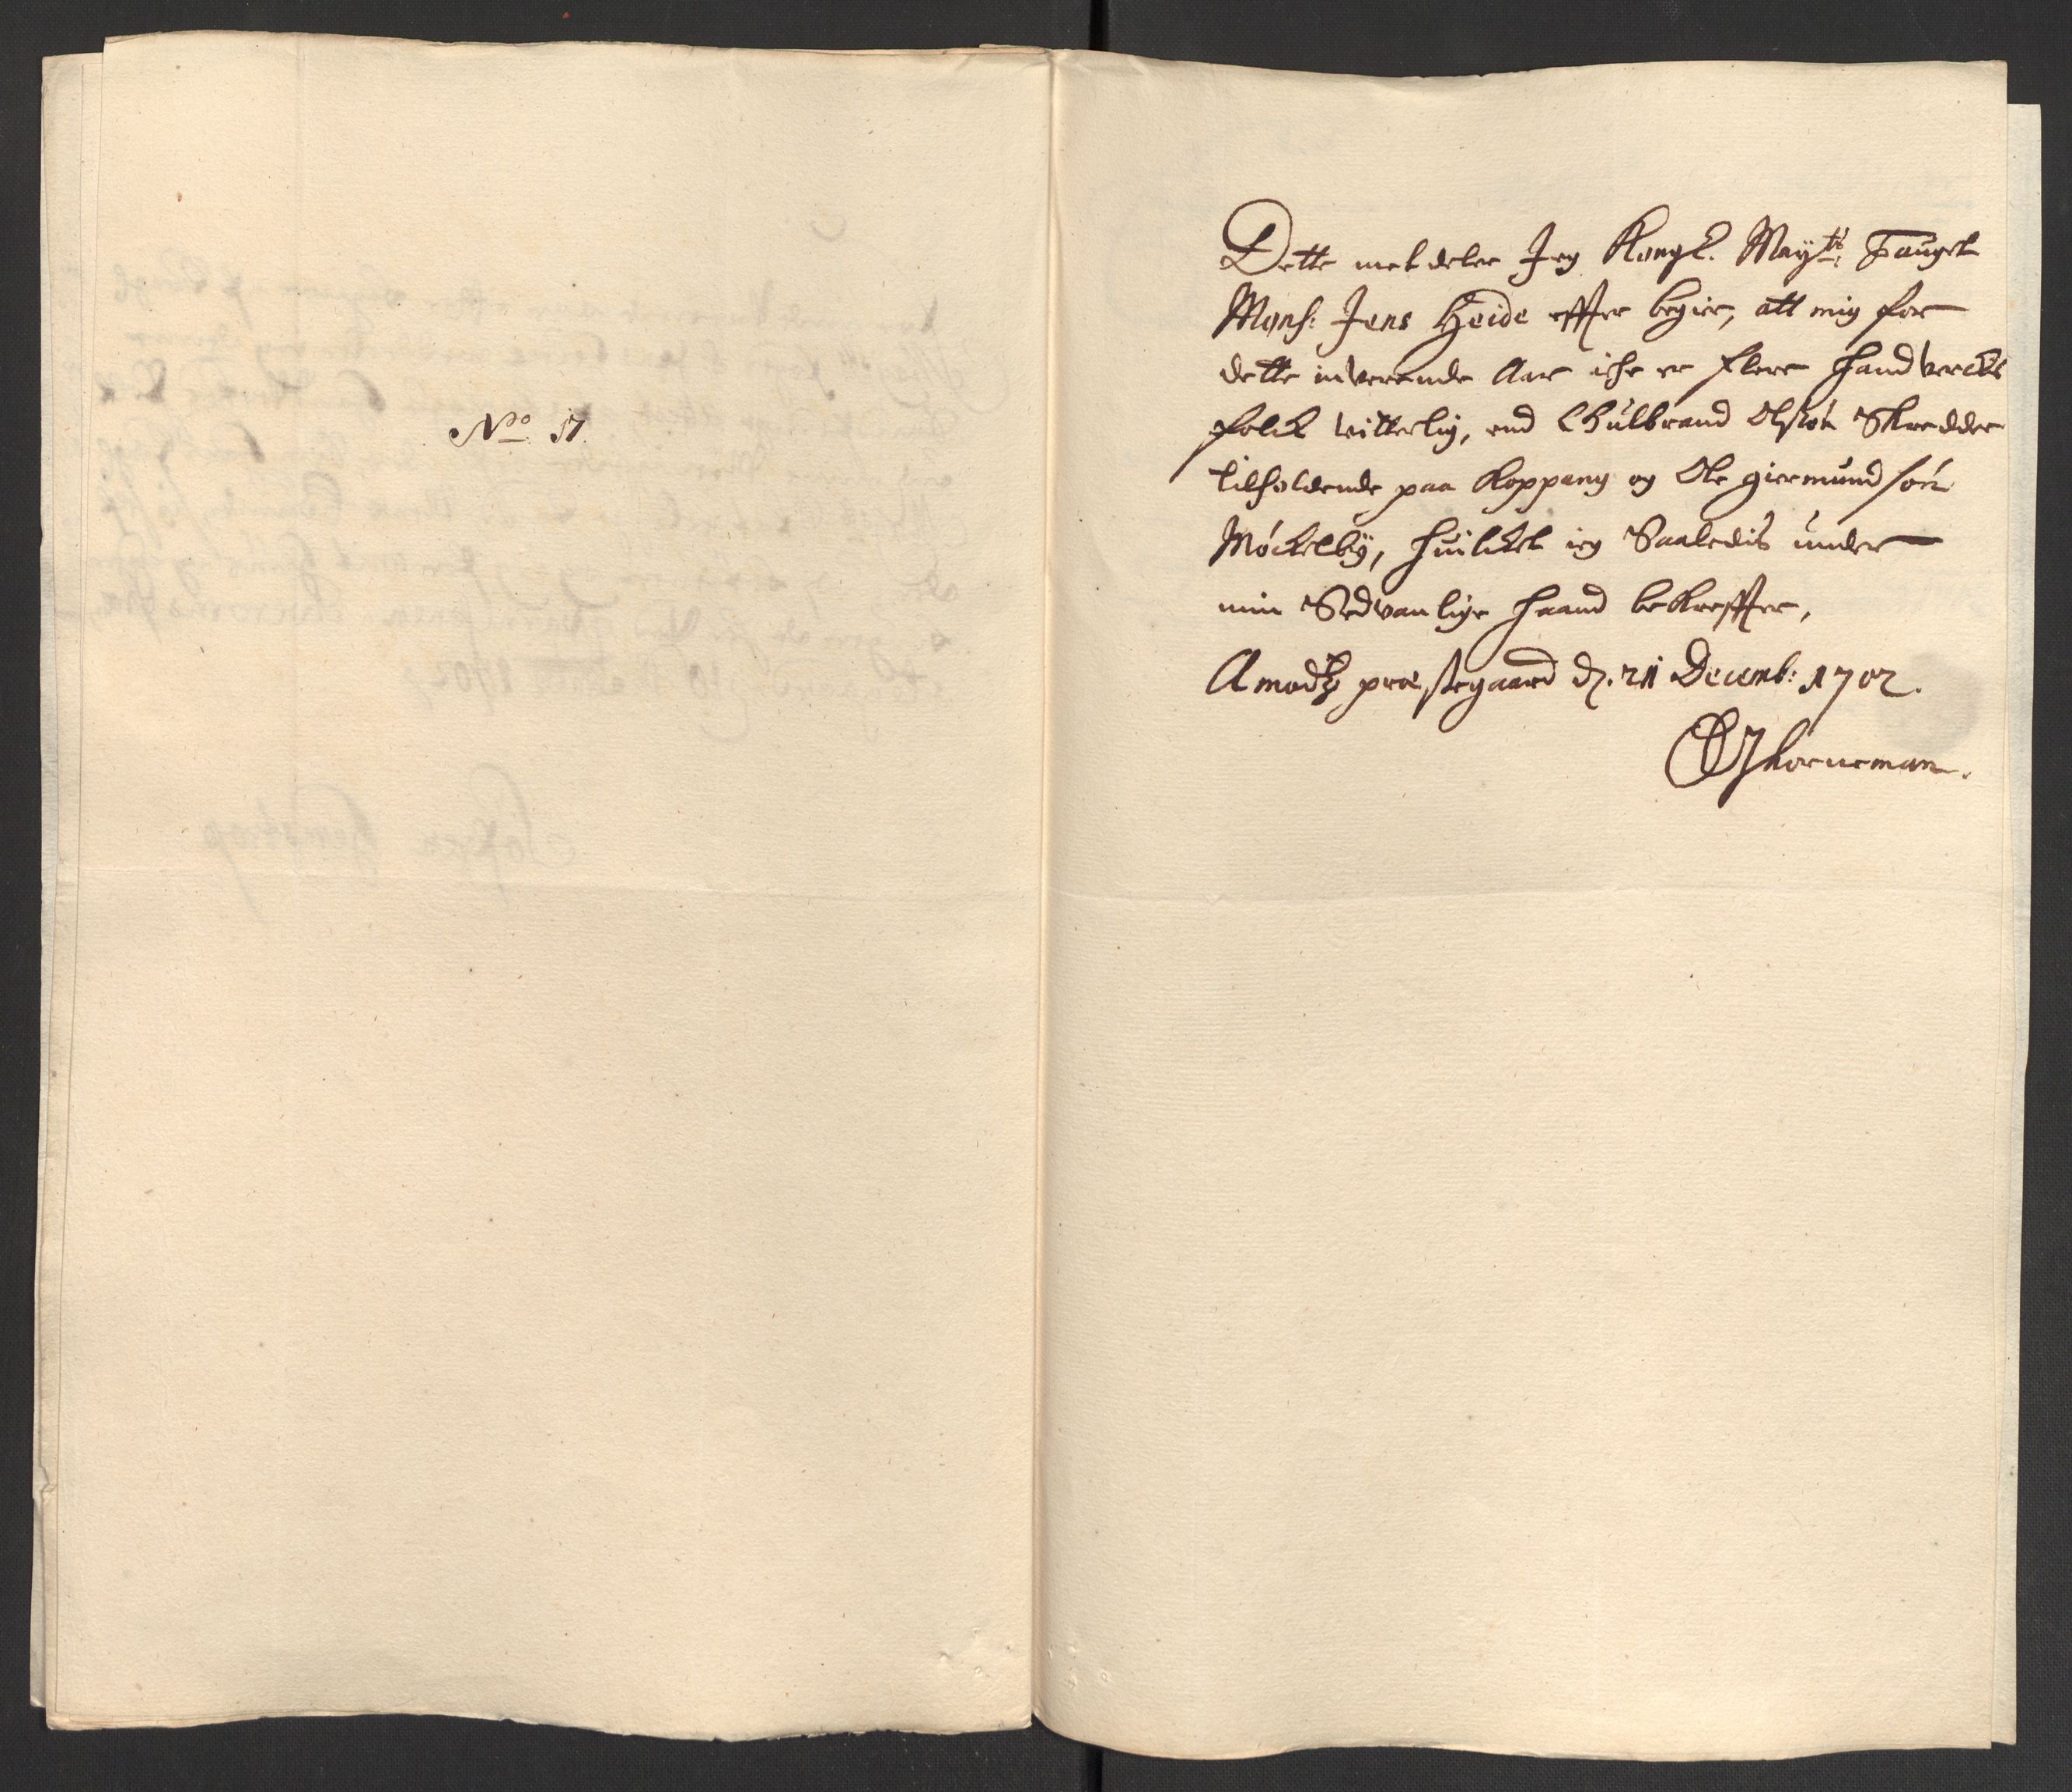 No 17.
Dette meddeler Jeg Kongl. Mayts Fauget
Mons: Jens Heide effter begier, att mig for
dette inverende Aar iche er flere handvercks
folck witterlig, end Gulbrand Olsøn Skredder
tilholdende paa Koppang og Ole giermundsøn
Møckelbÿ, huilcket ieg Saaledis under
min Sedvanlige haand bekreffter,
Amodtz præstegaard d. 21 Decemb: 1702.
Horneman.